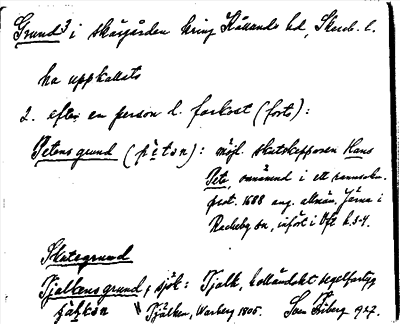 Grund³ i skärgården kring Kållands hd, Skarab. l.
ha uppkallats
2. efter en person l. farkost (forts):
Petens grund (pètən): möjl. skutskepparen Hans
Pete, omnämnd i ett rannsakn.
prot. 1688 ang. allmän. Järna i
Rackeby sn, infört i Vft h. 3-4.
Skutegrund
Tjalkens grund, sjök: Tjalk, holländskt segelfartyg
Tjälken, Warberg 1805. 927.